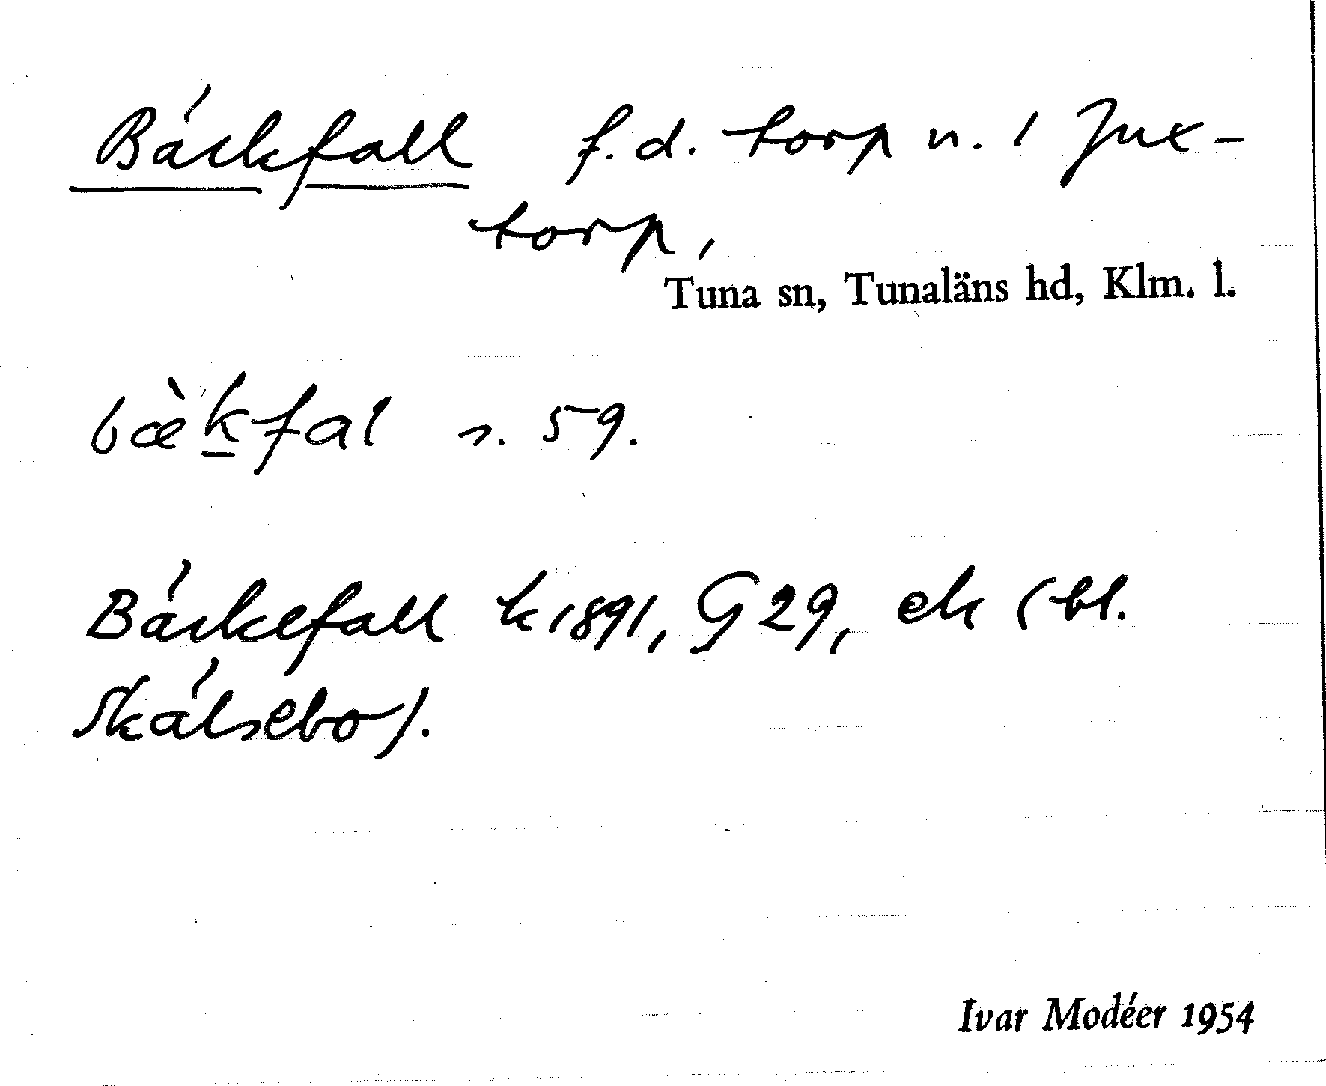 Bäckfall f.d. torp n. i Jux-
torp,
Tuna sn, Tunaläns hd, Klm. l.
bæ̀kfal s. 59.
Bäckefall k 1891, G 29, ek (bl.
Skälsebo).
Ivar Modéer 1954